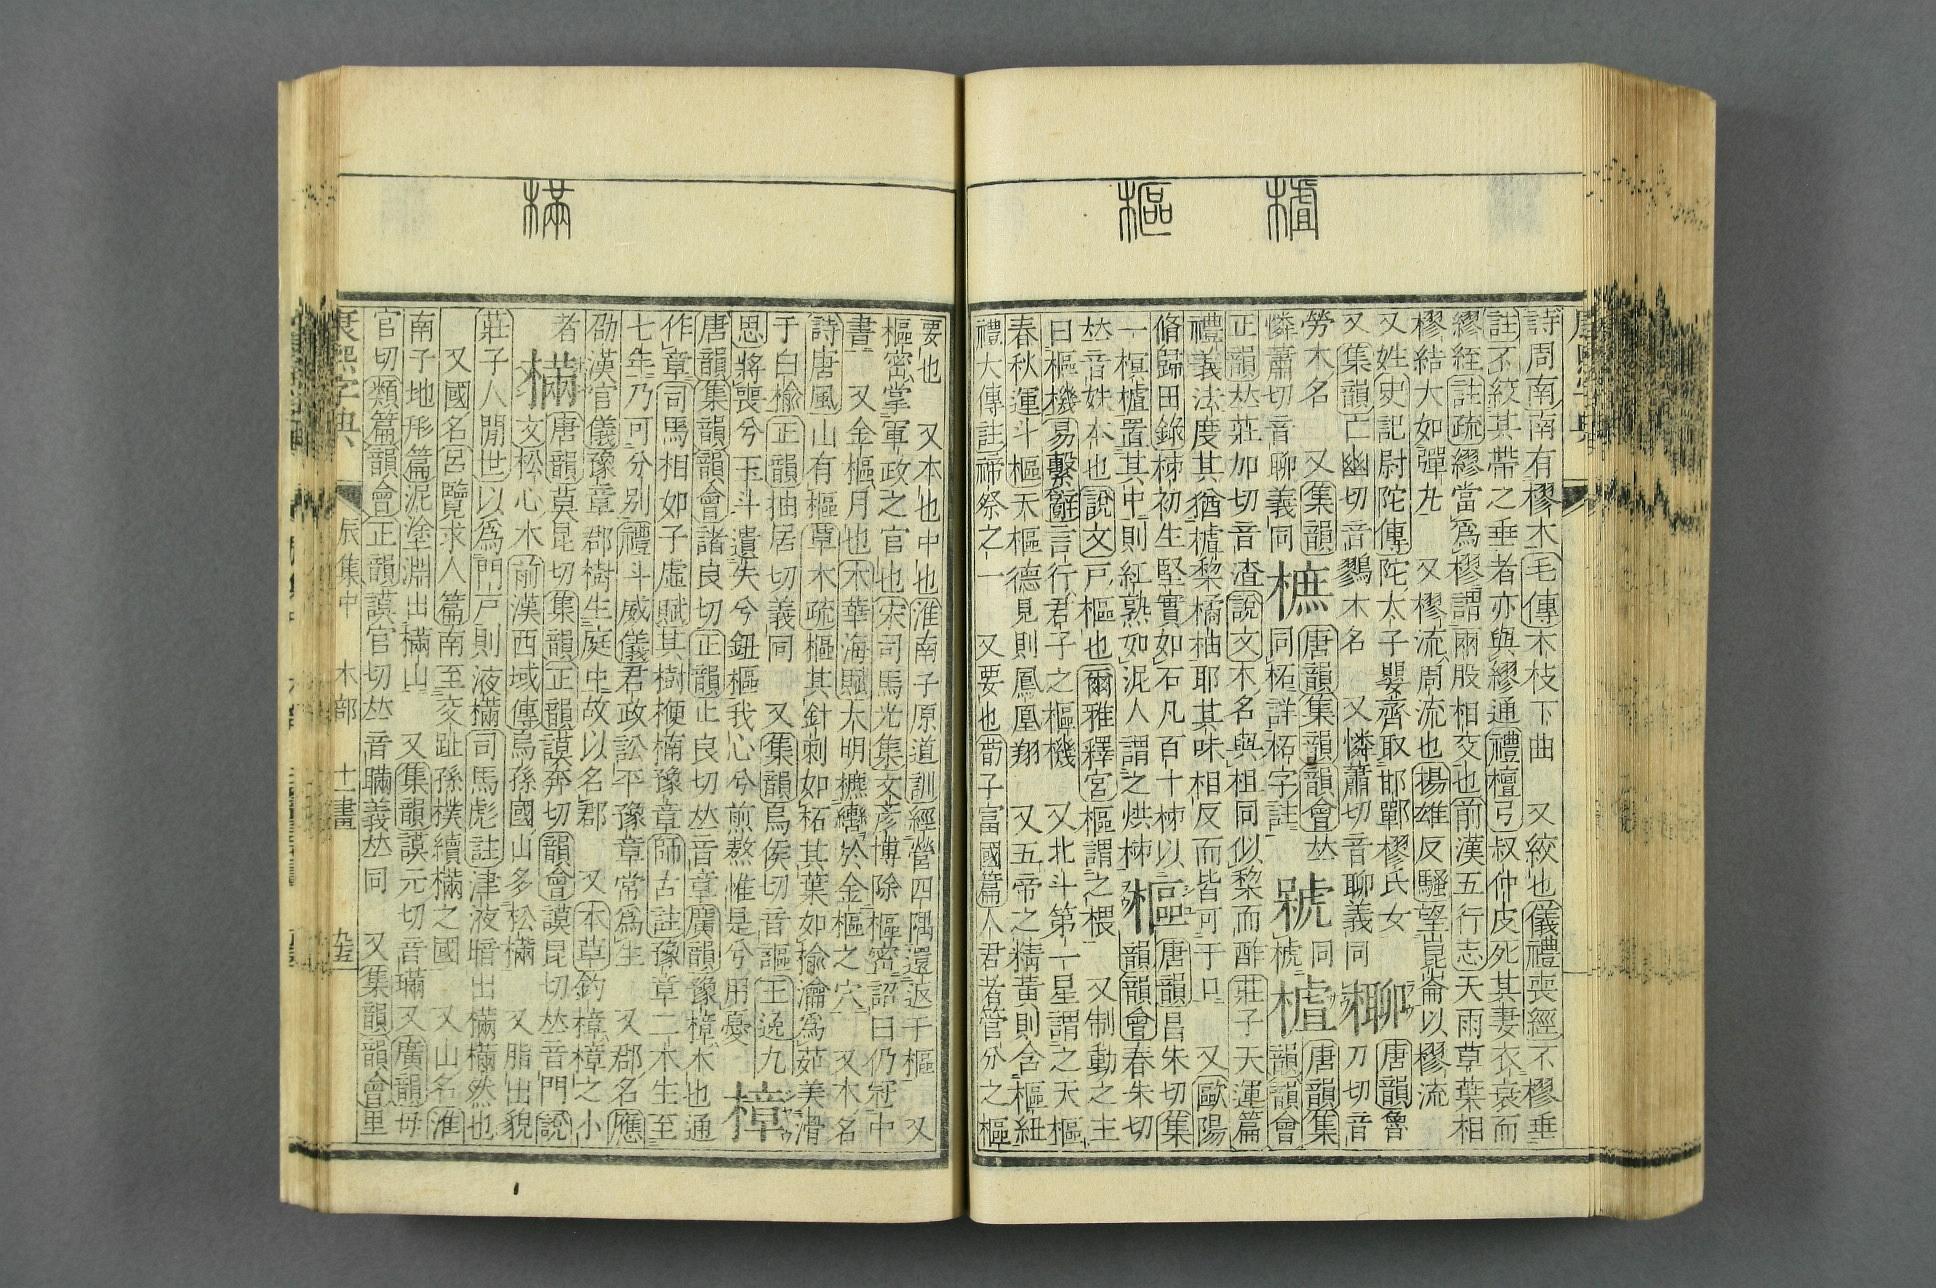 樝
樞
詩周南南有樛木毛傳木枝下曲　又絞也儀禮喪經不樛垂
註不絞其帶之垂者亦與繆通禮檀弓叔仲皮死其妻衣衰而
繆絰註疏繆當爲樛謂兩股相交也前漢五行志天雨草葉相
樛結大如彈丸　又樛流周流也揚雄反騷望崑崙以樛流
又姓史記尉陀傳陀太子嬰齊取邯鄲樛氏女　樃唐韻魯
又集韻亡幽切音鷚木名　又憐蕭切音聊義同　刀切音
勞木名　又集韻 樜唐韻集韻韻會𠀤 唐韻集
憐蕭切音聊義同 同柘詳柘字註 同 樝韻韻會
正韻𠀤莊加切音渣說文不名與柤同似棃而酢莊子天運篇
禮義法度其猶樝棃橘柚耶其味相反而皆可于口　又歐陽
脩歸田錄柹初生堅實如石凡百十柹以 樞唐韻昌朱切集
一榠樝置其中則紅熟如泥人謂之烘柹 韻韻會春朱切
𠀤音姝本也說文戸樞也爾雅釋宮樞謂之椳　又制動之主
曰樞機易繫辭言行君子之樞機　又北斗第一星謂之天樞
春秋運斗樞天樞德見則鳳凰翔　又五帝之精黃則含樞紐
禮大傳註禘祭之一　又要也荀子富國篇人君者管分之樞
樠
要也　又本也中也淮南子原道訓經營四隅還返于樞　又
樞密掌軍政之官也宋司馬光集文彥博除樞密詔曰仍冠中
書　又金樞月也木華海賦大明𢴲轡於金樞之穴　又木名
詩唐風山有樞草木疏樞其針刺如柘其葉如榆瀹爲茹美滑
于白榆正韻抽居切義同　又集韻烏侯切音謳王逸九
思將喪兮玉斗遺失兮鈕樞我心兮煎熬惟是兮用憂 樟
唐韻集韻韻會諸良切正韻止良切𠀤音章廣韻豫樟木也通
作章司馬相如子虛賦其樹楩楠豫章師古註豫章二木生至
七年乃可分别禮斗威儀君政訟平豫章常爲生　又郡名應
劭漢官儀豫章郡樹生庭中故以名郡　又本草釣樟樟之小
者 樠唐韻莫昆切集韻正韻謨奔切韻會謨昆切𠀤音門說
文松心木前漢西域傳烏孫國山多松樠　又脂出貌
莊子人閒世以爲門戸則液樠司馬彪註津液暗出樠樠然也
又國名呂覽求人篇南至交趾孫樸續樠之國　又山名淮
南子地形篇泥塗淵出樠山　又集韻謨元切音璊又廣韻母
官切類篇韻會正韻謨官切𠀤音瞞義𠀤同　又集韻韻會里
康熙字典　辰集中　木部　十一畫